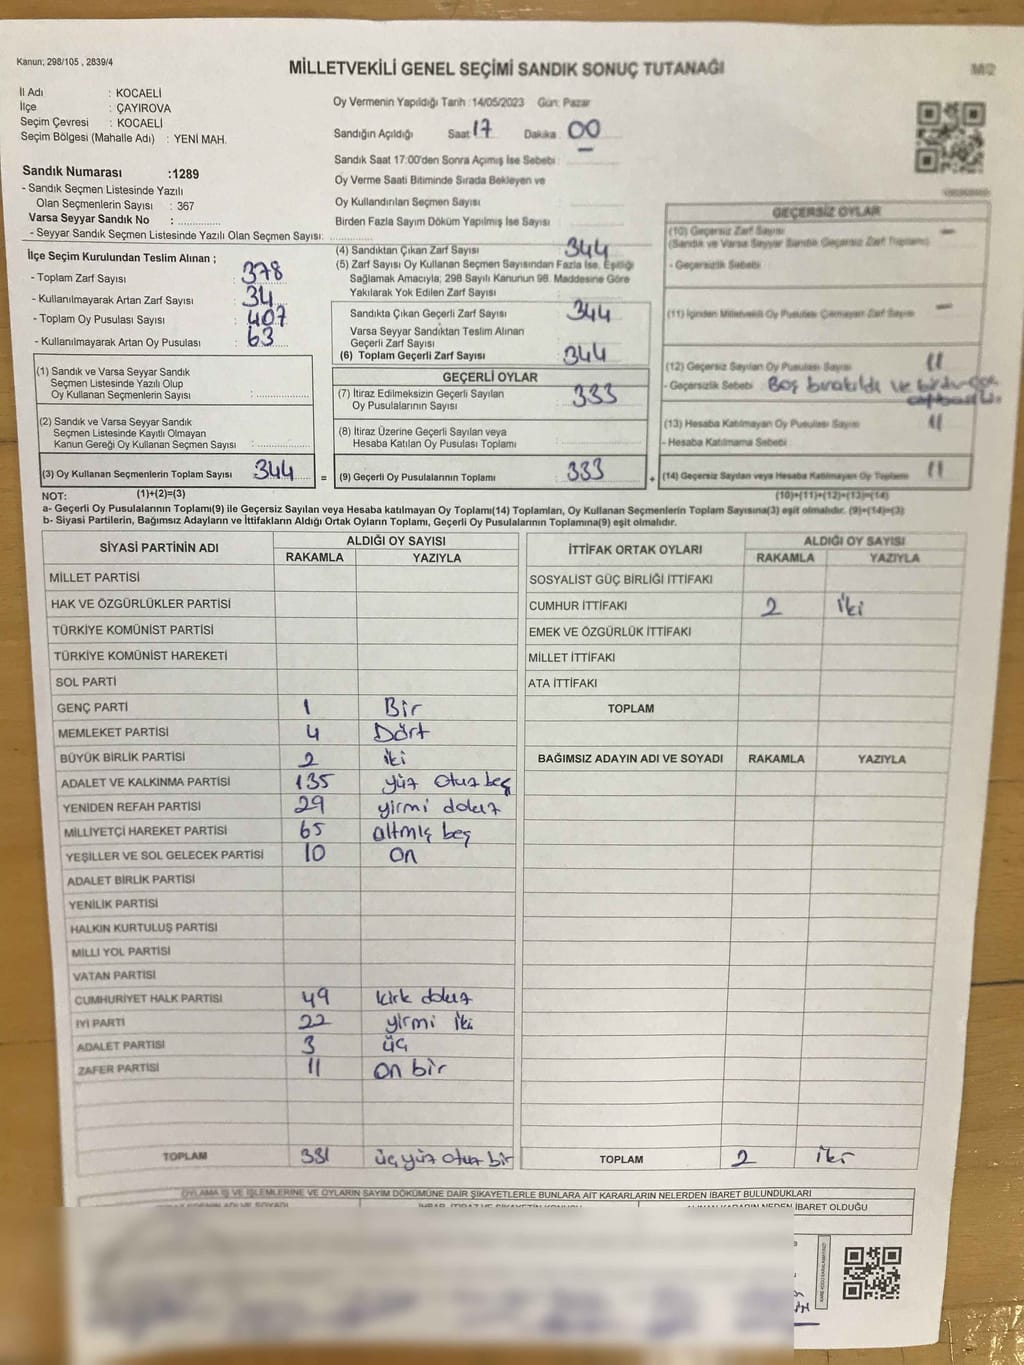 Kanun; 298/105 , 2839/4
MİLLETVEKİLİ GENEL SEÇİMİ SANDIK SONUÇ TUTANAĞI
İl Adı : KOCAELİ
İlçe : ÇAYIROVA
Seçim Çevresi : KOCAELİ
Seçim Bölgesi (Mahalle Adı) : YENİ MAH.
Sandık Numarası :1289
- Sandık Seçmen Listesinde Yazılı
Olan Seçmenlerin Sayısı : 367
Varsa Seyyar Sandık No :
- Seyyar Sandık Seçmen Listesinde Yazılı Olan Seçmen Sayısı:
İlçe Seçim Kurulundan Teslim Alınan ;
- Toplam Zarf Sayısı : 378
- Kullanılmayarak Artan Zarf Sayısı : 34
- Toplam Oy Pusulası Sayısı : 407
- Kullanılmayarak Artan Oy Pusulası : 63
(1) Sandık ve Varsa Seyyar Sandık
Seçmen Listesinde Yazılı Olup
Oy Kullanan Seçmenlerin Sayısı :
(2) Sandık ve Varsa Seyyar Sandık
Seçmen Listesinde Kayıtlı Olmayan
Kanun Gereği Oy Kullanan Seçmen Sayısı :
(3) Oy Kullanan Seçmenlerin Toplam Sayısı 344
(1)+(2)=(3)
Oy Vermenin Yapıldığı Tarih :14/05/2023 Gün: Pazar
Sandığın Açıldığı Saat 17 Dakika 00
Sandık Saat 17:00'den Sonra Açımış İse Sebebi :
Oy Verme Saati Bitiminde Sırada Bekleyen ve
Oy Kullandırılan Seçmen Sayısı
Birden Fazla Sayım Döküm Yapılmış İse Sayısı
(4) Sandıktan Çıkan Zarf Sayısı 344
(5) Zarf Sayısı Oy Kullanan Seçmen Sayısından Fazla İse, Eşitliği
Sağlamak Amacıyla; 298 Sayılı Kanunun 98. Maddesine Göre
Yakılarak Yok Edilen Zarf Sayısı
Sandıkta Çıkan Geçerli Zarf Sayısı 344
Varsa Seyyar Sandıktan Teslim Alınan
Geçerli Zarf Sayısı
(6) Toplam Geçerli Zarf Sayısı 344
GEÇERLİ OYLAR
(7) İtiraz Edilmeksizin Geçerli Sayılan
Oy Pusulalarının Sayısı 333
(8) İtiraz Üzerine Geçerli Sayılan veya
Hesaba Katılan Oy Pusulası Toplamı
= (9) Geçerli Oy Pusulalarının Toplamı 333 +
GEÇERSİZ OYLAR
(10) Geçersiz Zarf Sayısı -
(Sandık ve Varsa Seyyar Sandık Geçersiz Zarf Toplamı)
- Geçersizlik Sebebi :
(11) İçinden Milletvekili Oy Pusulası Çıkmayan Zarf Sayısı -
(12) Geçersiz Sayılan Oy Pusulası Sayısı 11
- Geçersizlik Sebebi : Boş bırakıldı ve birden çok
(13) Hesaba Katılmayan Oy Pusulası Sayısı 11
- Hesaba Katılmama Sebebi :
(14) Geçersiz Sayılan veya Hesaba Katılmayan Oy Toplamı 11
(10)+(11)+(12)+(13)=(14)
NOT:
a- Geçerli Oy Pusulalarının Toplamı(9) ile Geçersiz Sayılan veya Hesaba katılmayan Oy Toplamı(14) Toplamları, Oy Kullanan Seçmenlerin Toplam Sayısına(3) eşit olmalıdır. (9)+(14)=(3)
b- Siyasi Partilerin, Bağımsız Adayların ve İttifakların Aldığı Ortak Oyların Toplamı, Geçerli Oy Pusulalarının Toplamına(9) eşit olmalıdır.
SİYASİ PARTİNİN ADI ALDIĞI OY SAYISI
RAKAMLA YAZIYLA
MİLLET PARTİSİ
HAK VE ÖZGÜRLÜKLER PARTİSİ
TÜRKİYE KOMÜNİST PARTİSİ
TÜRKİYE KOMÜNİST HAREKETİ
SOL PARTİ
GENÇ PARTİ 1 Bir
MEMLEKET PARTİSİ 4 Dört
BÜYÜK BİRLİK PARTİSİ 2 iki
ADALET VE KALKINMA PARTİSİ 135 yüz otuz beş
YENİDEN REFAH PARTİSİ 29 yirmi dokuz
MİLLİYETÇİ HAREKET PARTİSİ 65 altmış beş
YEŞİLLER VE SOL GELECEK PARTİSİ 10 on
ADALET BİRLİK PARTİSİ
YENİLİK PARTİSİ
HALKIN KURTULUŞ PARTİSİ
MİLLİ YOL PARTİSİ
VATAN PARTİSİ
CUMHURİYET HALK PARTİSİ 49 kırk dokuz
İYİ PARTİ 22 yirmi iki
ADALET PARTİSİ 3 üç
ZAFER PARTİSİ 11 on bir
TOPLAM 331 üç yüz otuz bir
İTTİFAK ORTAK OYLARI ALDIĞI OY SAYISI
RAKAMLA YAZIYLA
SOSYALİST GÜÇ BİRLİĞİ İTTİFAKI
CUMHUR İTTİFAKI 2 iki
EMEK VE ÖZGÜRLÜK İTTİFAKI
MİLLET İTTİFAKI
ATA İTTİFAKI
TOPLAM
BAĞIMSIZ ADAYIN ADI VE SOYADI RAKAMLA YAZIYLA
TOPLAM 2 iki
OYLAMA İŞ VE İŞLEMLERİNE VE OYLARIN SAYIM DÖKÜMÜNE DAİR ŞİKAYETLERLE BUNLARA AİT KARARLARIN NELERDEN İBARET BULUNDUKLARI
NEDEN İBARET OLDUĞU